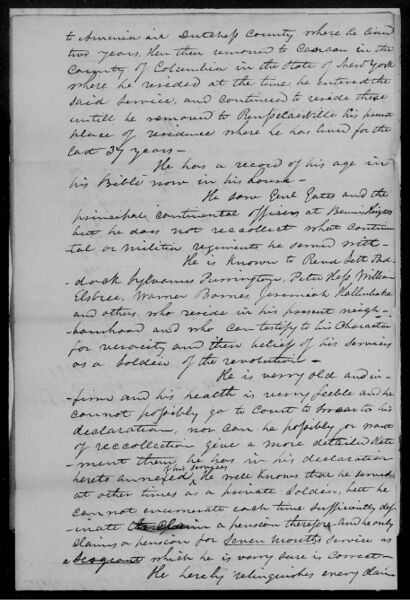 to Armenia in Dutchess County where he lived
two years, then removed to Canaan in the
County of Columbia in the State of New York
where he resided at the time he entered the
said service, and continued to reside there
untill he removed to Rensselaerville his present
place of residence where he has lived for the
last 37 years -
He has a record of his age in
his Bible now in his house -
He saw Genl Gates and the
principal continental officers at Bemis Heights
but he does not reccollect what Continen
tal or Militia regiments he served with -
He is known to Revd Sett
dock Sylvanus Purrington, Peter Hess William
Elsbree, Warner Barnes, Jeremiah Hollenbake
and others who reside in his present neigh-
-bourhood and who can testify to his Character
for veracity and their belief of his services
as a Soldier of the revolution -
He is verry old and in-
-firm and his health is verry feeble and he
cannot possibly go to Court to swear to his
declaration, nor can he possibly or
of reccollection give a more detailed State
-ment then he has in his declaration
hereto annexed of his services He well Knows that he served
at other times as a private Soldier, but he
can not enumerate each time sufficiently def-
-inate to Claim a pension therefore and he only
claims a pension for Seven Months service as
a Seargeant which he is verry sure is correct -
He hereby relinquishes every claim